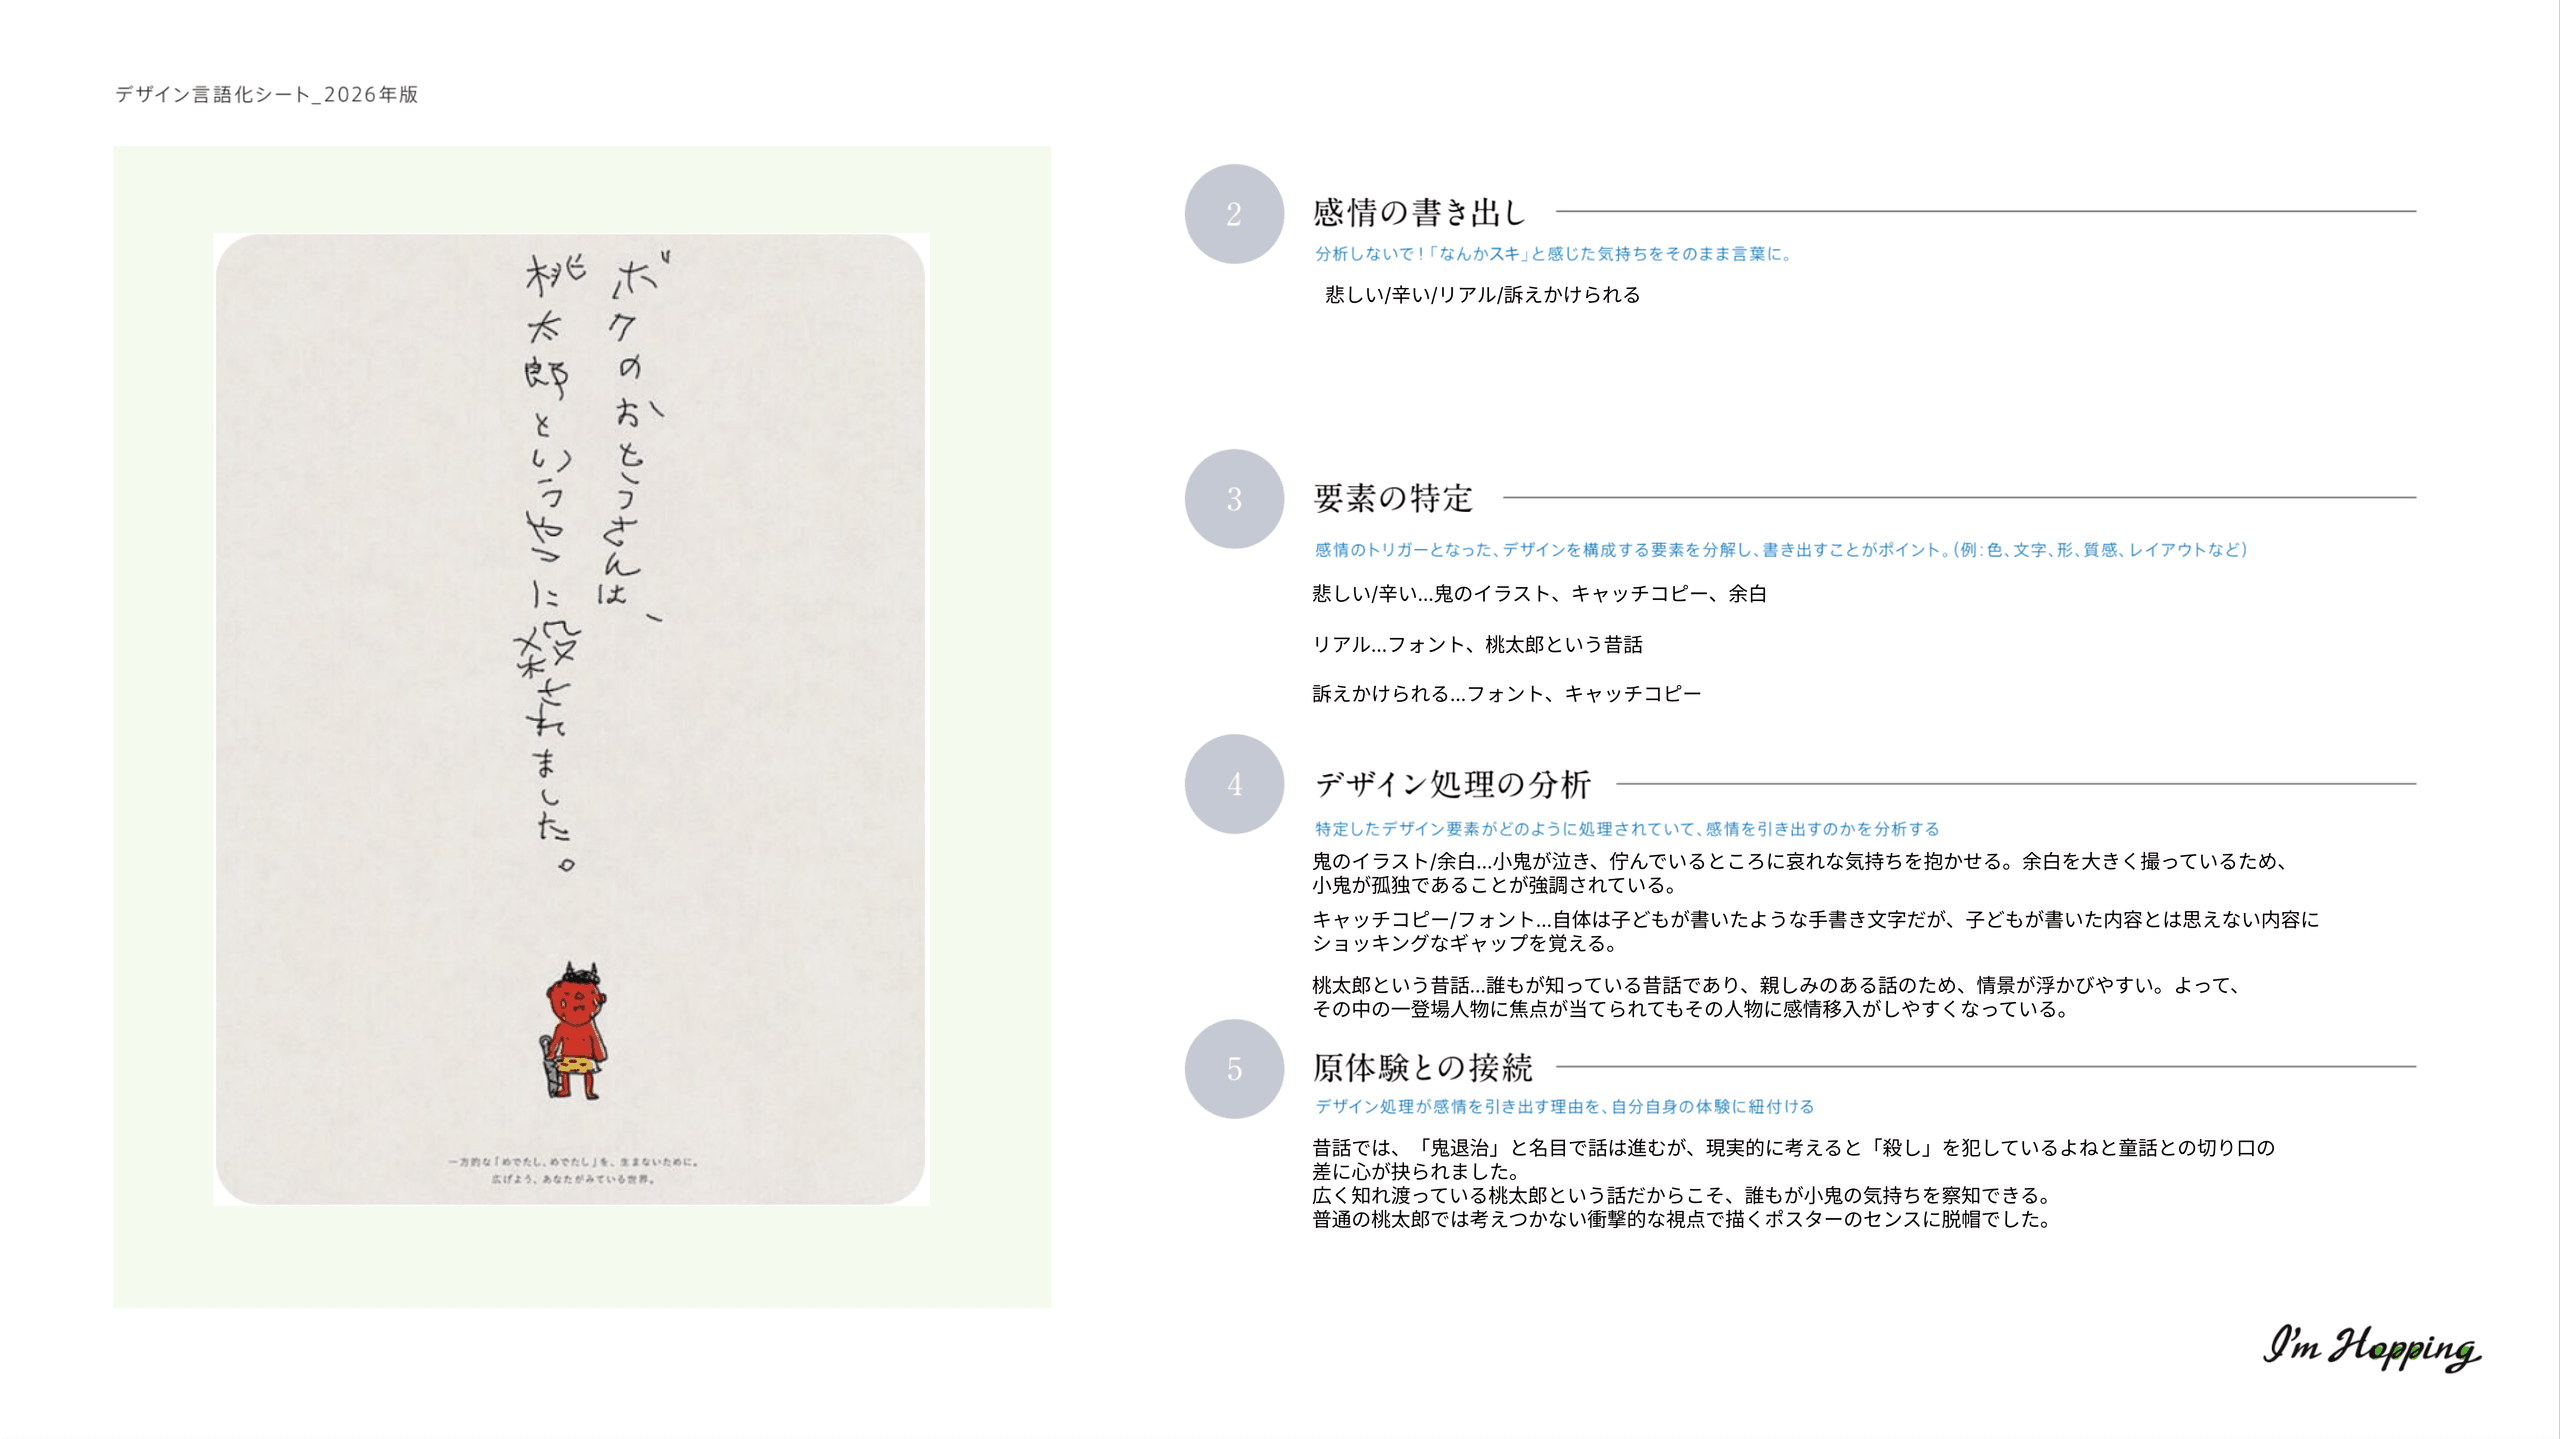 デザイン言語化シート_2026年版
ボクのおとうさんは、
桃太郎というやつに殺されました。
一方的な「めでたし、めでたし」を、生まないために。
広げよう、あなたがみている世界。
2
感情の書き出し
分析しないで！「なんかスキ」と感じた気持ちをそのまま言葉に。
悲しい/辛い/リアル/訴えかけられる
3
要素の特定
感情のトリガーとなった、デザインを構成する要素を分解し、書き出すことがポイント。（例：色、文字、形、質感、レイアウトなど）
悲しい/辛い...鬼のイラスト、キャッチコピー、余白
リアル...フォント、桃太郎という昔話
訴えかけられる...フォント、キャッチコピー
4
デザイン処理の分析
特定したデザイン要素がどのように処理されていて、感情を引き出すのかを分析する
鬼のイラスト/余白...小鬼が泣き、佇んでいるところに哀れな気持ちを抱かせる。余白を大きく撮っているため、
小鬼が孤独であることが強調されている。
キャッチコピー/フォント...自体は子どもが書いたような手書き文字だが、子どもが書いた内容とは思えない内容に
ショッキングなギャップを覚える。
桃太郎という昔話...誰もが知っている昔話であり、親しみのある話のため、情景が浮かびやすい。よって、
その中の一登場人物に焦点が当てられてもその人物に感情移入がしやすくなっている。
5
原体験との接続
デザイン処理が感情を引き出す理由を、自分自身の体験に紐付ける
昔話では、「鬼退治」と名目で話は進むが、現実的に考えると「殺し」を犯しているよねと童話との切り口の
差に心が抉られました。
広く知れ渡っている桃太郎という話だからこそ、誰もが小鬼の気持ちを察知できる。
普通の桃太郎では考えつかない衝撃的な視点で描くポスターのセンスに脱帽でした。
I'm Hopping